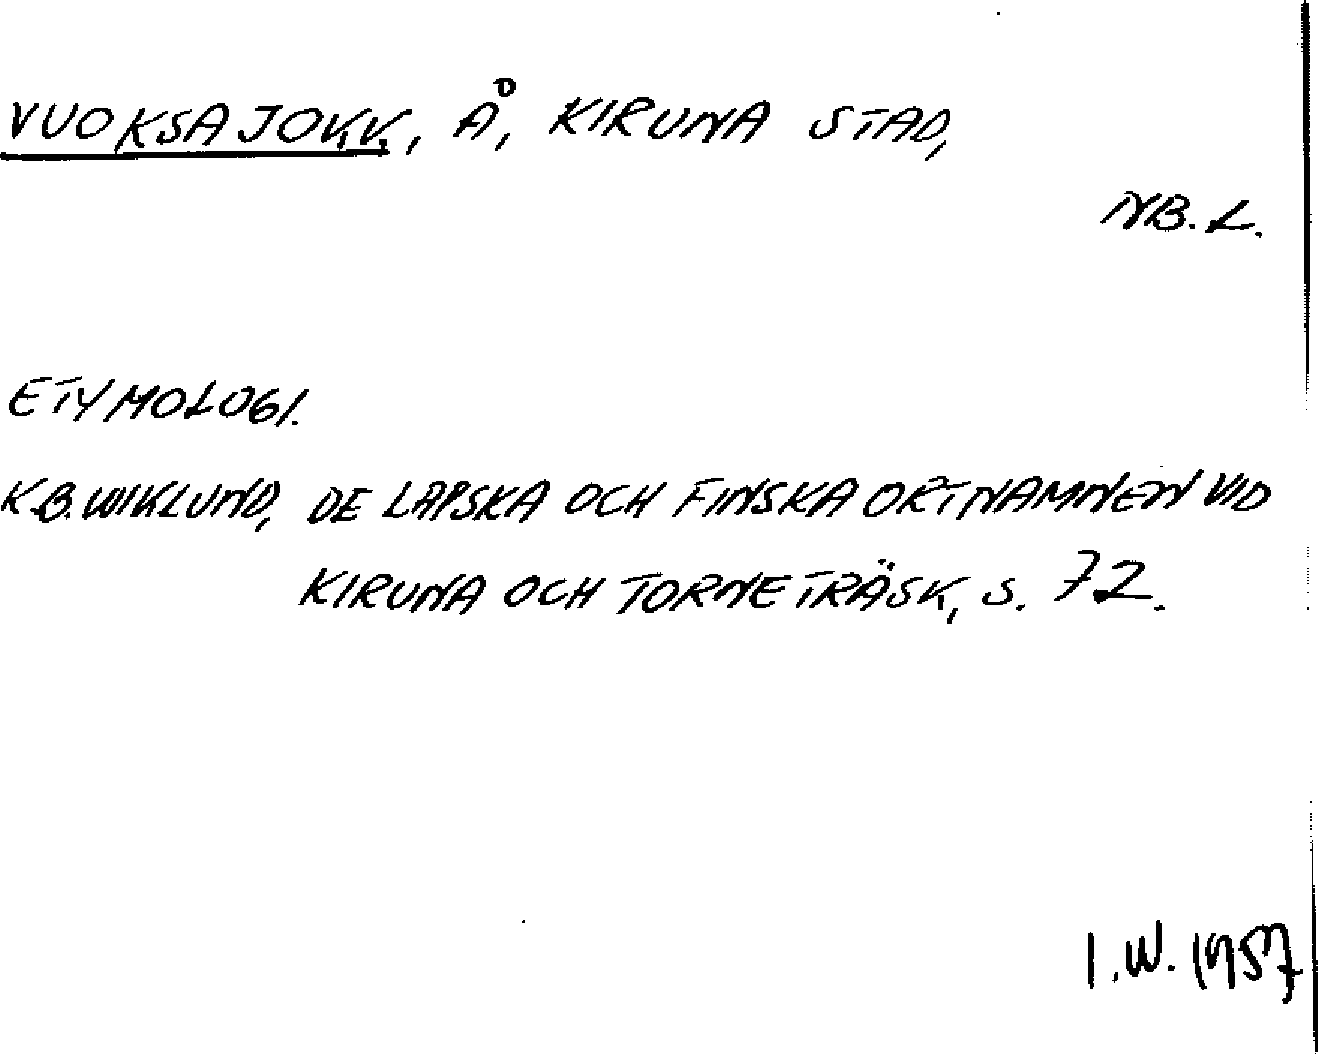 VUOKSAJOKK, Å, KIRUNA STAD,
NB. L.
ETYMOLOGI.
K.B. WIKLUND, DE LAPSKA OCH FINSKA ORTNAMNEN VID
KIRUNA OCH TORNETRÄSK, S. 72.
I.W. 1957